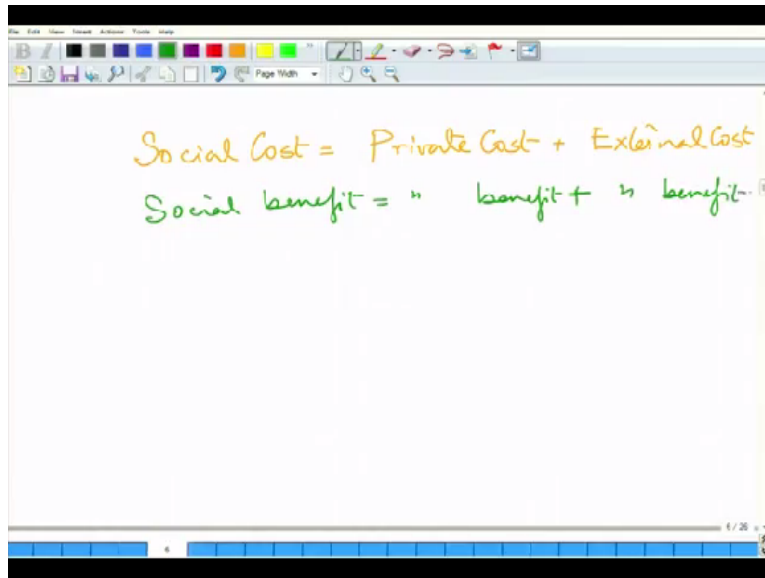 File Edit View Insert Actions Tools Help
B I
Page Width
Social Cost = Private Cost + External Cost
Social benefit = " benefit + " benefit
6 / 26
6